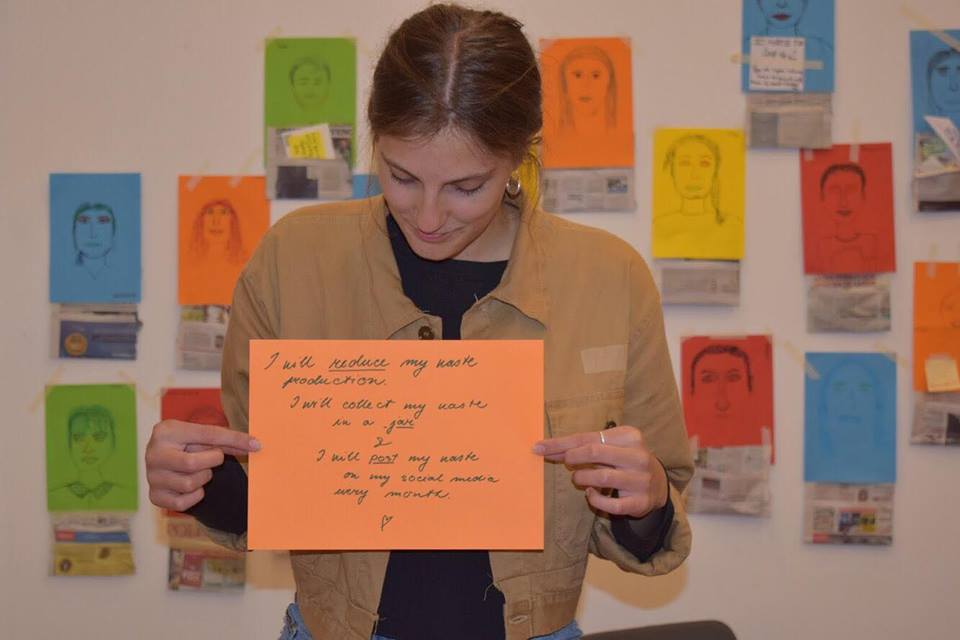 I will reduce my waste
production.
I will collect my waste
in a jar
&
I will post my waste
on my social media
every month.